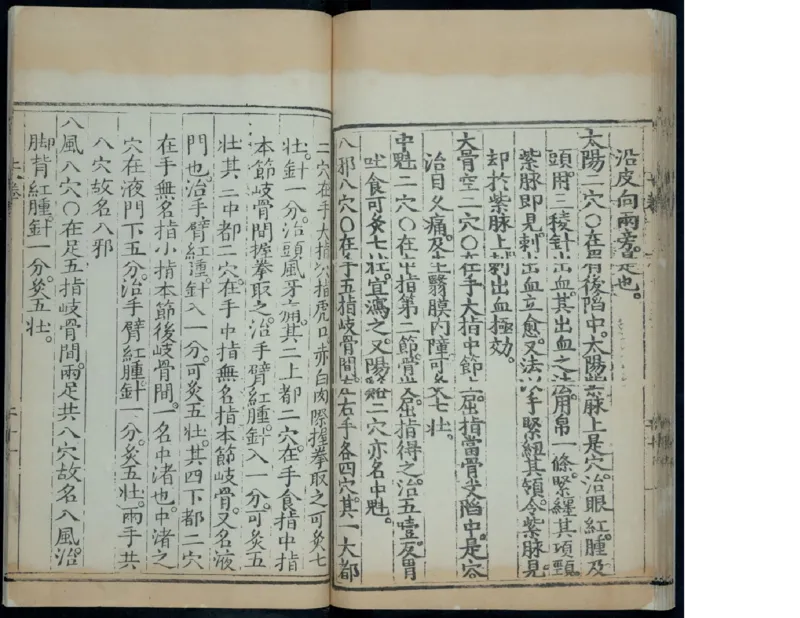 沿皮向兩旁。是也。
太陽二穴〇在眉後陷中。太陽紫脉上是穴。治眼紅腫及
頭。用三稜針出血。其出血之法。用帛一條緊纏其項頸。
紫脉即見。刺出血立愈。又法以手緊紐其領令紫脉見。
却於紫脉上刺出血極効。
大骨空二穴〇在手大指中節上。屈指當骨尖陷中。是穴
治目久痛及生翳膜內障可灸七壯。
中魁二穴〇在中指第二節骨尖。屈指得之。治五噎。反胃
吐食可灸七壯。宜瀉之。又陽谿二穴亦名中魁。
八邪八穴〇在手五指歧骨間。左右手各四穴。其一大都
二穴在手大指次指虎口。赤白肉際握拳取之可灸七
壯。針一分。治頭風牙痛。其二上都二穴。在手食指中指
本節歧骨間握拳取之。治手臂紅腫。針入一分。可灸五
壯其三中都二穴。在手中指無名指本節歧骨。又名液
門也。治手臂紅腫。針入一分。可灸五壯。其四下都二穴
在手無名指小指本節後歧骨間。一名中渚也。中渚之
穴在液門下五分。治手臂紅腫針一分。灸五壯。兩手共
八穴故名八邪
八風八穴〇在足五指歧骨間。兩足共八穴故名八風。治
脚背紅腫。針一分。灸五壯。
上卷
二十一